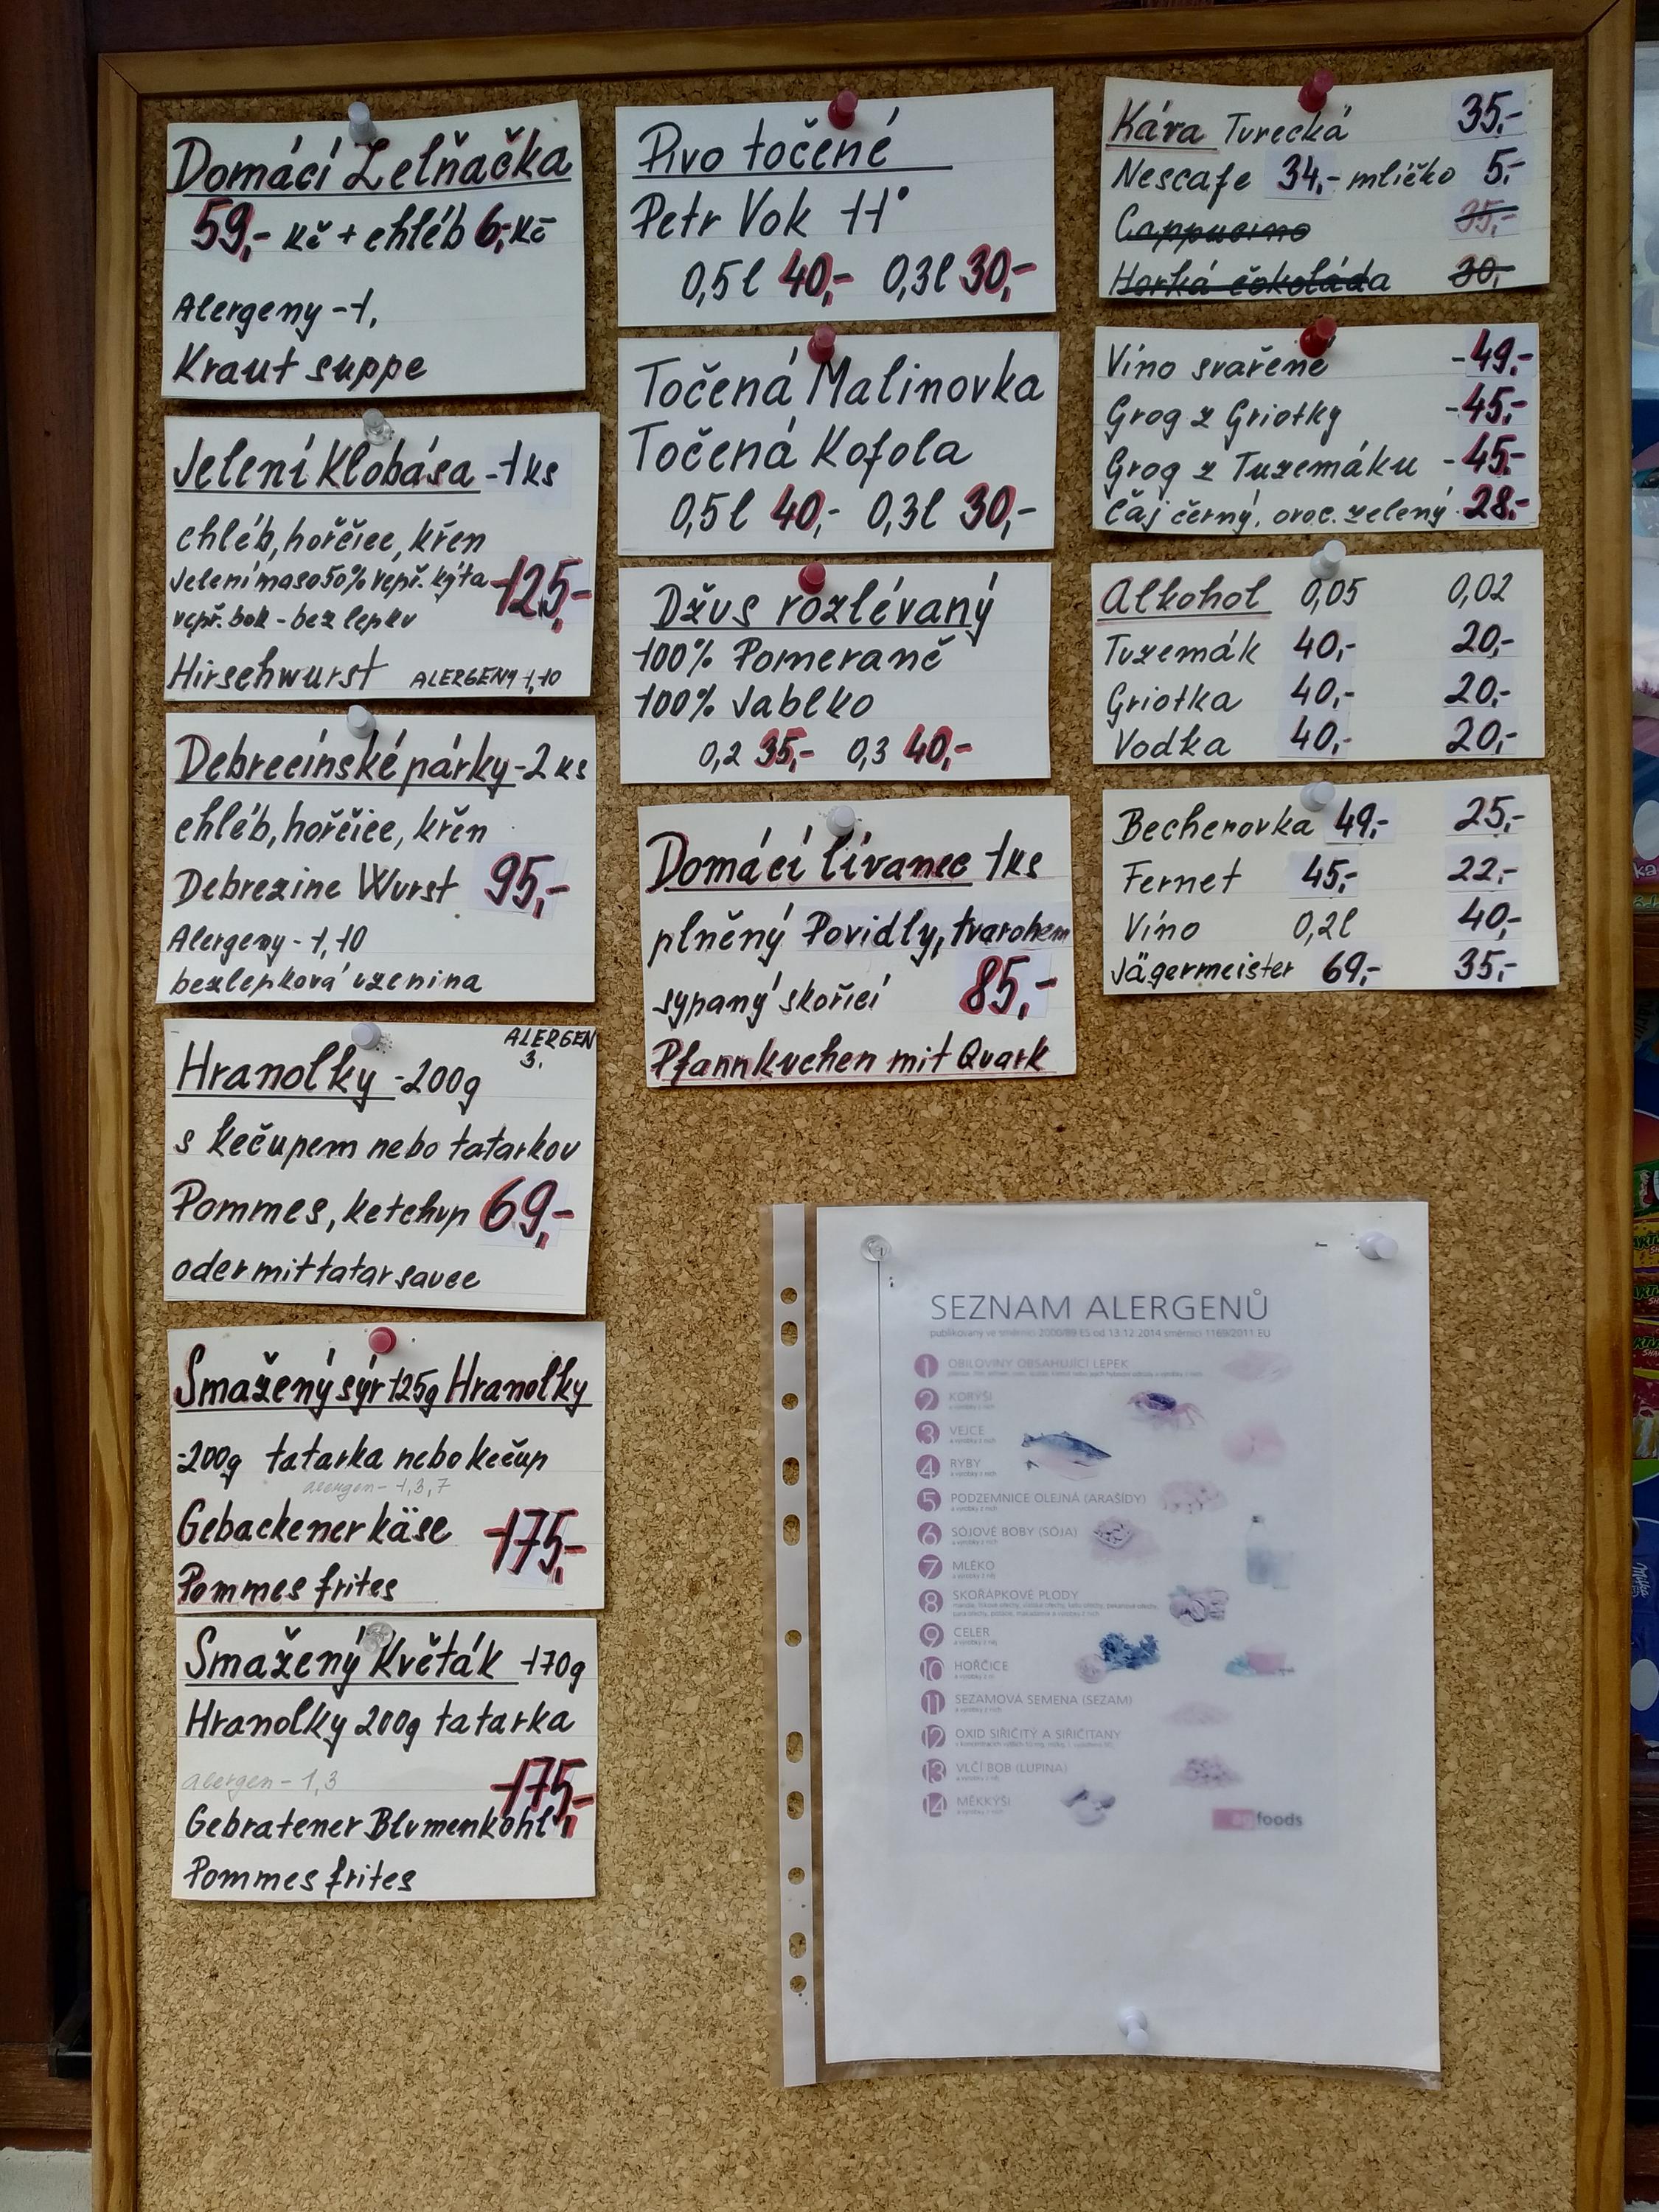 Domácí Zelňačka
59,- Kč + chléb 6,- Kč
Alergeny - 1,
Kraut suppe
Jelení Klobása - 1 ks
chléb, hořčice, křen
Jelení maso 50% vepř. kýta
125,-
vepř. bok - bez lepku
Hirschwurst ALERGENY 1, 10
Debrecínské párky - 2 ks
chléb, hořčice, křěn
Debrezine Wurst 95,-
Alergeny - 1, 10
bezlepková uzenina
ALERGEN
3.
Hranolky - 200g
s kečupem nebo tatarkou
Pommes, ketchup 69,-
oder mit tatar sauce
Smažený sýr 125g Hranolky
-200g tatarka nebo kečup
alergen - 1, 3, 7
Gebackener käse 175,-
Pommes frites
Smažený Květák 170g
Hranolky 200g tatarka
alergen - 1, 3
175,-
Gebratener Blumenkohl
Pommes frites
Pivo točené
Petr Vok 11°
0,5l 40,- 0,3l 30,-
Točená Malinovka
Točená Kofola
0,5l 40,- 0,3l 30,-
Džus rozlévaný
100% Pomeranč
100% Jablko
0,2 35,- 0,3 40,-
Domácí lívanec 1ks
plněný Povidly, tvarohem
sypaný skořicí 85,-
Pfannkuchen mit Quark
Káva Turecká 35,-
Nescafe 34,- mlíčko 5,-
Cappucino 35,-
Horká čokoláda 30,-
Víno svařené - 49,-
Grog z Griotky - 45,-
Grog z Tuzemáku - 45,-
čaj černý, ovoc. zelený 28,-
Alkohol 0,05 0,02
Tuzemák 40,- 20,-
Griotka 40,- 20,-
Vodka 40,- 20,-
Becherovka 49,- 25,-
Fernet 45,- 22,-
Víno 0,2l 40,-
Jägermeister 69,- 35,-
SEZNAM ALERGENŮ
publikovaný ve směrnici 2000/89 ES od 13.12.2014 směrnicí 1169/2011 EU
1 OBILOVINY OBSAHUJÍCÍ LEPEK
2 KORÝŠI
a výrobky z nich
3 VEJCE
a výrobky z nich
4 RYBY
a výrobky z nich
5 PODZEMNICE OLEJNÁ (ARAŠÍDY)
a výrobky z nich
6 SÓJOVÉ BOBY (SÓJA)
a výrobky z nich
7 MLÉKO
a výrobky z něj
8 SKOŘÁPKOVÉ PLODY
9 CELER
a výrobky z něj
10 HOŘČICE
a výrobky z ní
11 SEZAMOVÁ SEMENA (SEZAM)
a výrobky z nich
12 OXID SIŘIČITÝ A SIŘIČITANY
13 VLČÍ BOB (LUPINA)
a výrobky z něj
14 MĚKKÝŠI
a výrobky z nich
foods
Milka